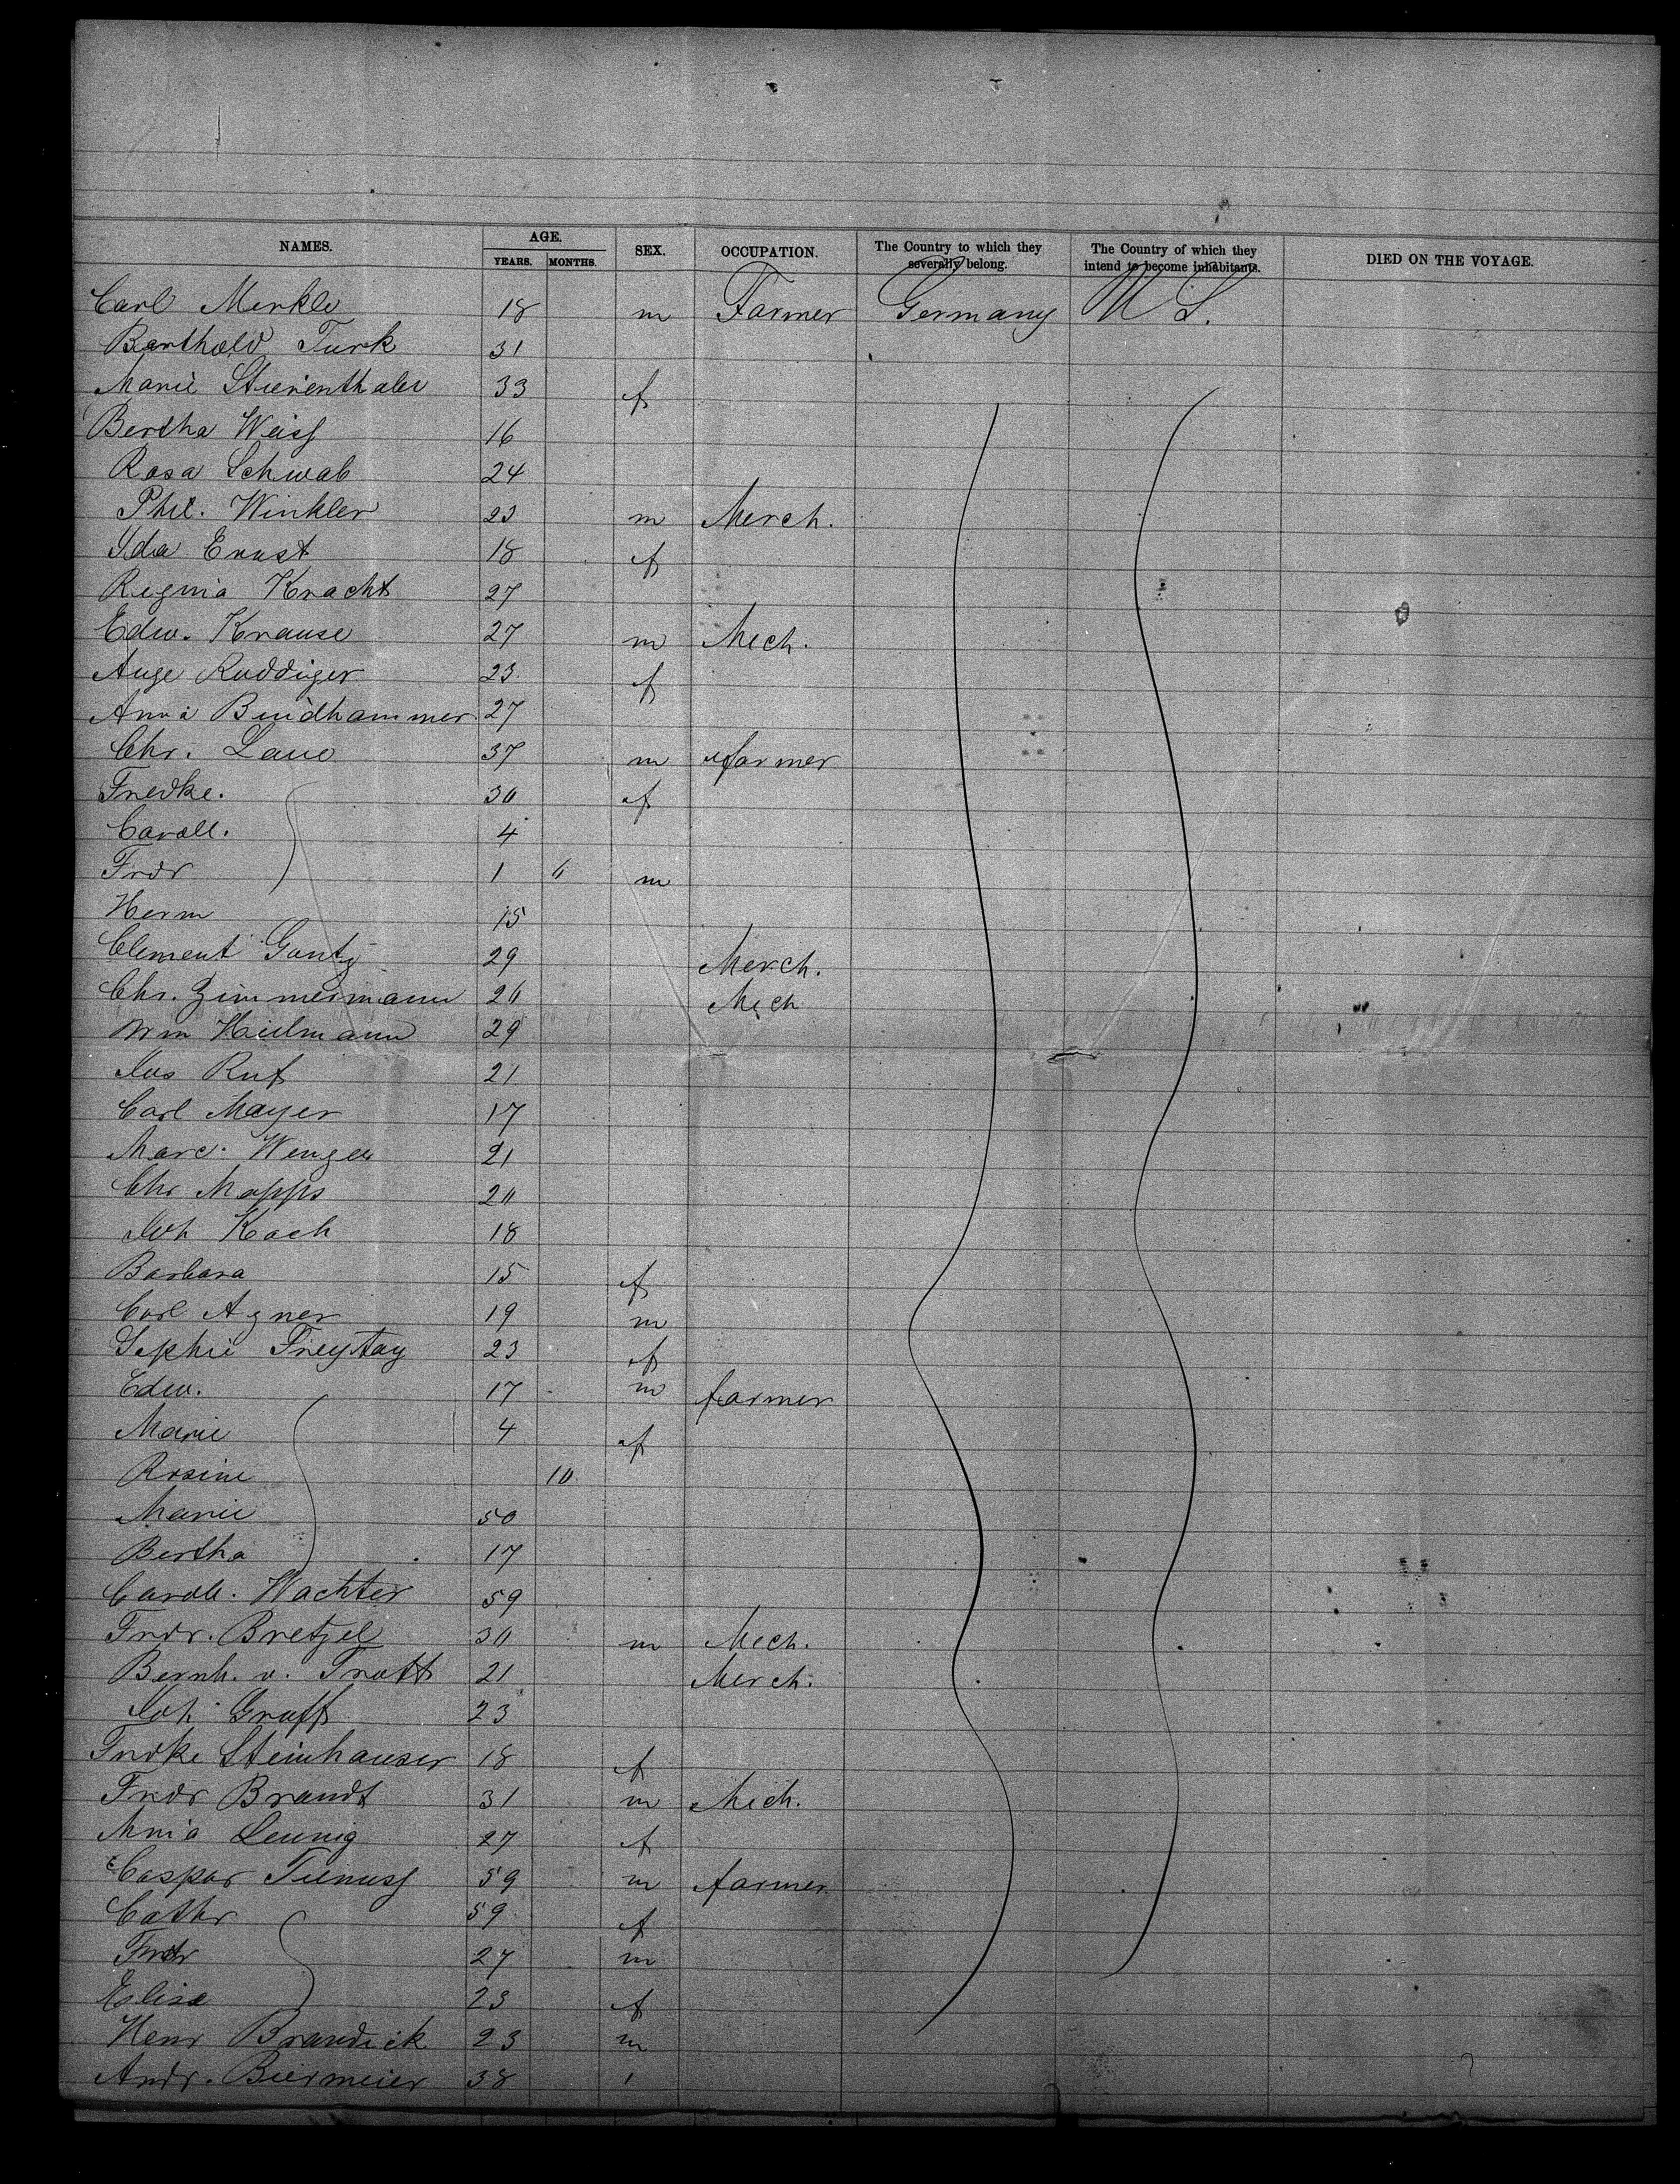 NAMES. AGE. YEARS. MONTHS. SEX. OCCUPATION. The Country to which they severally belong. The Country of which they intend to become inhabitants. DIED ON THE VOYAGE.
Carl Merkle 18 m Farmer Germany U S.
Barthold Turk 31
Marie 33 f
Bertha Weiss 16
Rosa Schwab 24
Phil. Winkler 23 m Merch.
Ida Ernst 18 f
Regina Kracht 27
Edw. Krause 27 m Mech.
Auge Ruddiger 23 f
Anna Bindhammer 27
Chr. Laue 37 m farmer
Fredke. 30 f
Caroll. 4
Frdr 1 m
Herm 15
Clement Gantz 29 Merch.
Chr. Zimmermann 20 Mech
Wm Heilmann 29
Jos Ruf 21
Carl Mayer 17
Marc. Wenger 21
Chr Mapps 20
Joh Koch 18
Barbara 15 f
Carl Agner 19 m
Sophie Freytag 23 f
Edw. 17 m farmer
Marie 4 f
Rosine 10
Marie 50
Bertha 17
Caroll. Wachter 59
Frdr. Bretzel 30 m Mech.
Bernh. v. Trott 21 Merch.
Joh Graff 23
Frdke Steinhauser 18 f
Frdr Brandt 31 m Mech.
Anna Leunig 27 f
Caspar 59 m farmer
Cathr 59 f
Frdr 27 m
Elise 23 f
Henr Brandick 23 m
Andr. Biermeier 38